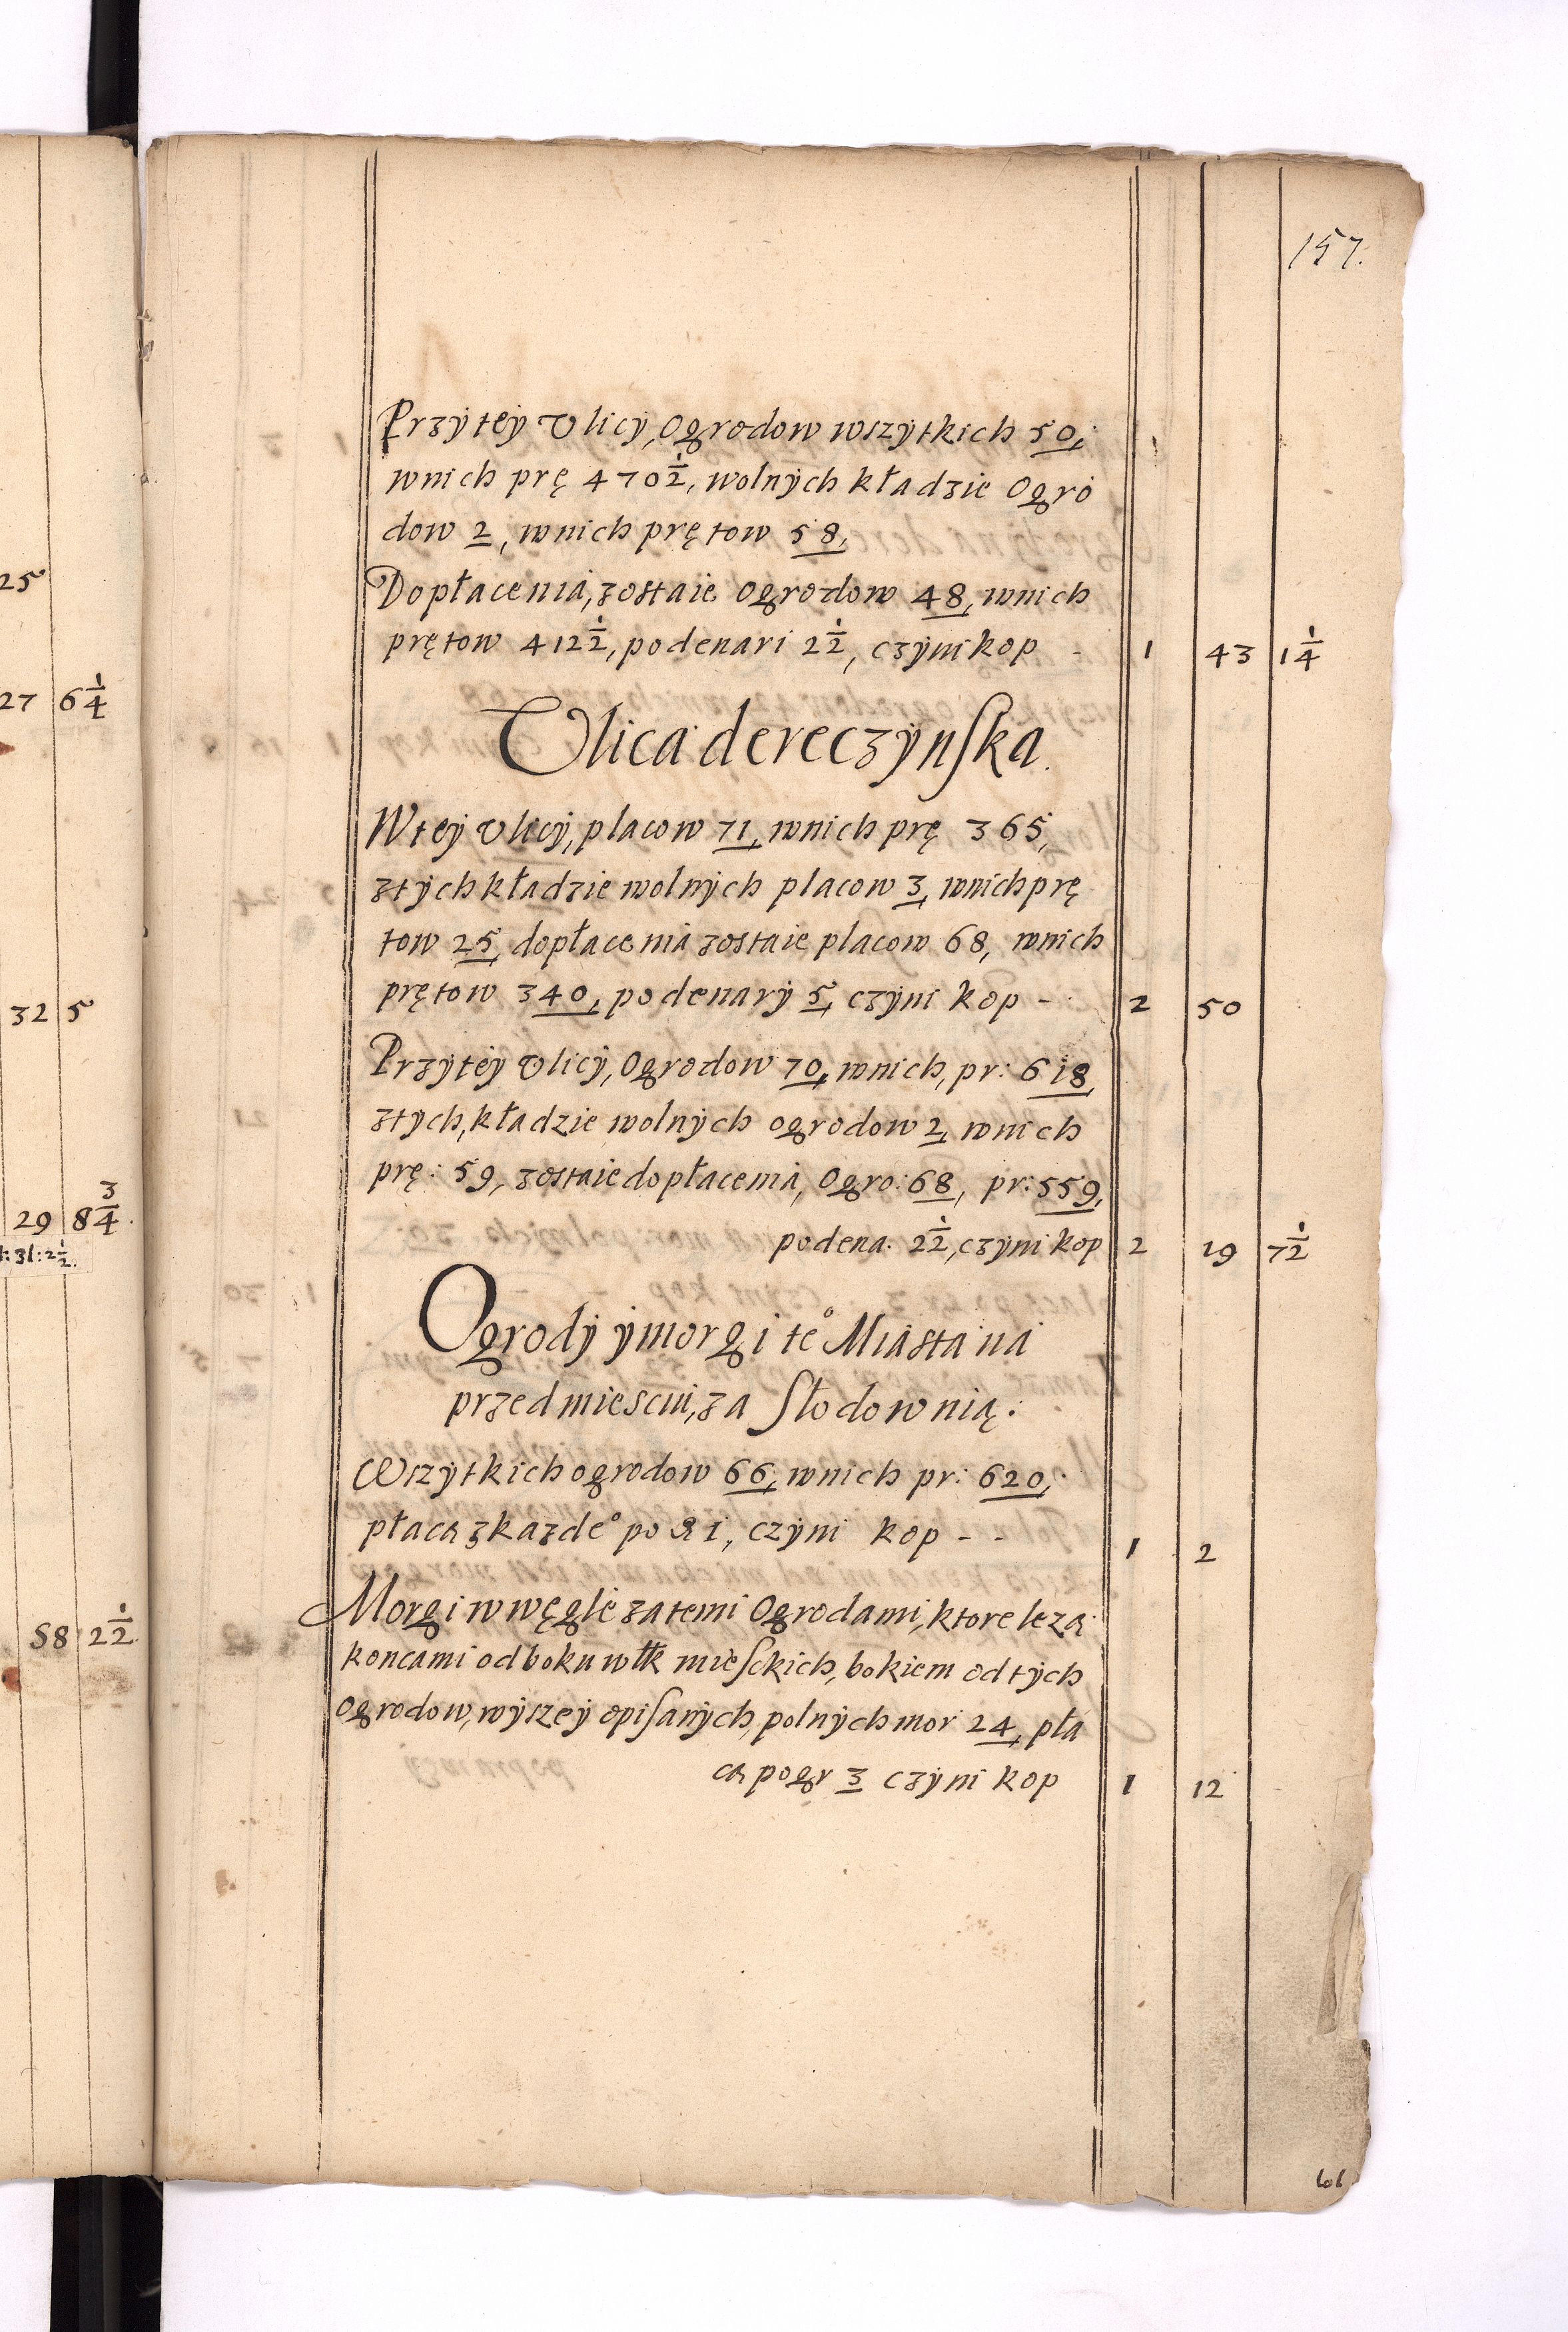 157.
Przÿ teÿ Vlicÿ, Ogrodow wszÿtkich 50,
wnich prę 470 1/2, wolnÿch kładzie Ogro
dow 2, wnich prętow 58,
Dopłacenia, zostaie Ogrodow 48, wnich
prętow 412 1/2, podenari 2 1/2, czÿni kop - 1 43 1 1/4
Vlica dereczÿnska.
Wteÿ vlicÿ, placow 71, wnich prę 365,
ztÿch kładzie wolnÿch placow 3, wnich prę
tow 25, dopłacenia zostaie placow 68, wnich
prętow 340, podenarÿ 5, czÿni kop - 2 50
Przÿteÿ vlicÿ, Ogrodow 70, wnich, pr: 618,
ztÿch, kładzie wolnÿch ogrodow 2, wnich
prę: 59, zostaie dopłacenia, Ogro: 68, pr: 559,
podena. 2 1/2, czÿni kop 2 19 7 1/2
Ogrodÿ ÿmorgi te° Miasta na
przedmiesciu, za Słodownią.
Wszÿtkich ogrodow 66, wnich pr: 620,
płacą zkazde° po 1, czÿni kop - - 1 2
Morgi wwęgle zatemi Ogrodami, ktore lezą
koncami odboku włk miesckich, bokiem odtÿch
Ogrodow, wÿszeÿ opisanÿch, polnÿch mor 24, pła
cą pogr 3 czÿni kop 1 12
25
27 6 1/4
32 5
29 8 3/4
:31:2 1/2.
58 2 1/2